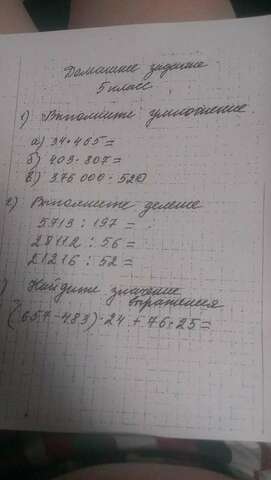 Домашнее задание
5 класс
1) Выполните умножение
а) 34·465=
б) 403·807=
в) 376 000·520
2) Выполните деление
5713 : 197 =
28112 : 56 =
21216 : 52 =
) Найдите значение
выражения
(657-483)·24+76·25=